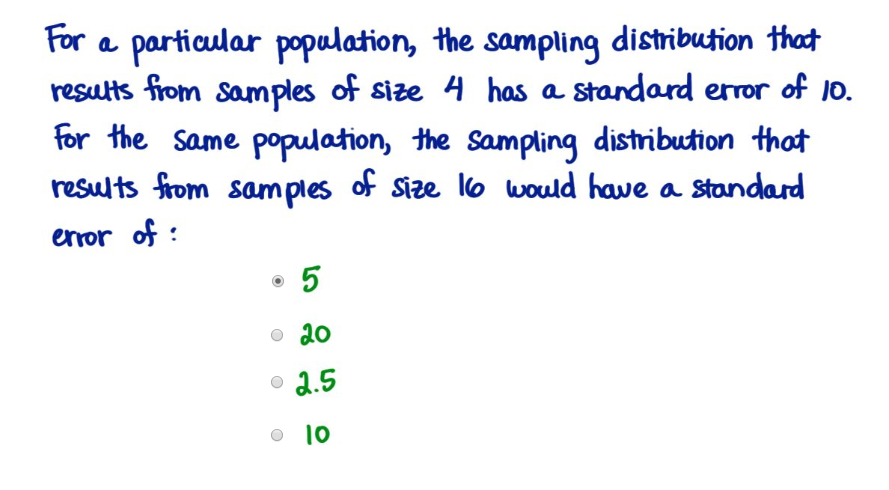 For a particular population, the sampling distribution that
results from samples of size 4 has a standard error of 10.
For the same population, the sampling distribution that
results from samples of size 16 would have a standard
error of :
5
20
2.5
10